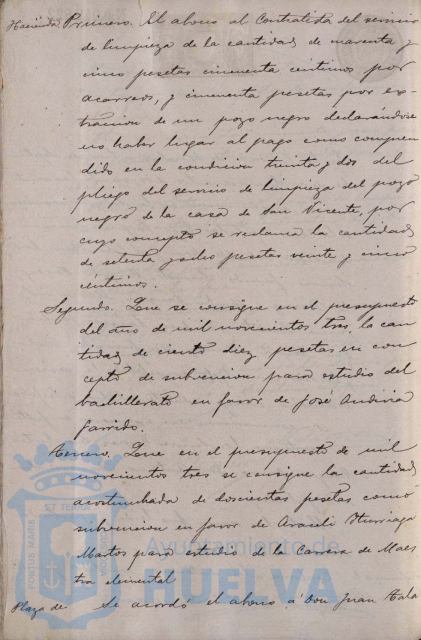 Hacienda. Primero. El abono al Contratista del servicio
de limpieza de la cantidad de cuarenta y
cinco pesetas cincuenta centimos por
acarreos, y cincuenta pesetas por ex-
traccion de un pozo negro declarándose
no haber lugar al pago como compren
dido en la condicion treinta y dos del
pliego del servicio de limpieza del pozo
negro de la casa de San Vicente, por
cuyo concepto se reclama la cantidad
de setenta y ocho pesetas veinte y cinco
céntimos.
Segundo. Que se consigne en el presupuesto
del año de mil novecientos tres, la can
tidad de ciento diez pesetas en con
cepto de subvencion para estudio del
bachillerato en favor de José
Garrido.
Tercero. Que en el presupuesto de mil
novecientos tres se consigne la cantidad
acostumbrada de doscientas pesetas como
subvencion en favor de Araceli Iturriaga
Martos para estudio de la Carrera de Maes
tra elemental
Plaza de Se acordó el abono á Don Juan Tala
Ayuntamiento de
HUELVA
PORTUS MARIS
ET TERRAE